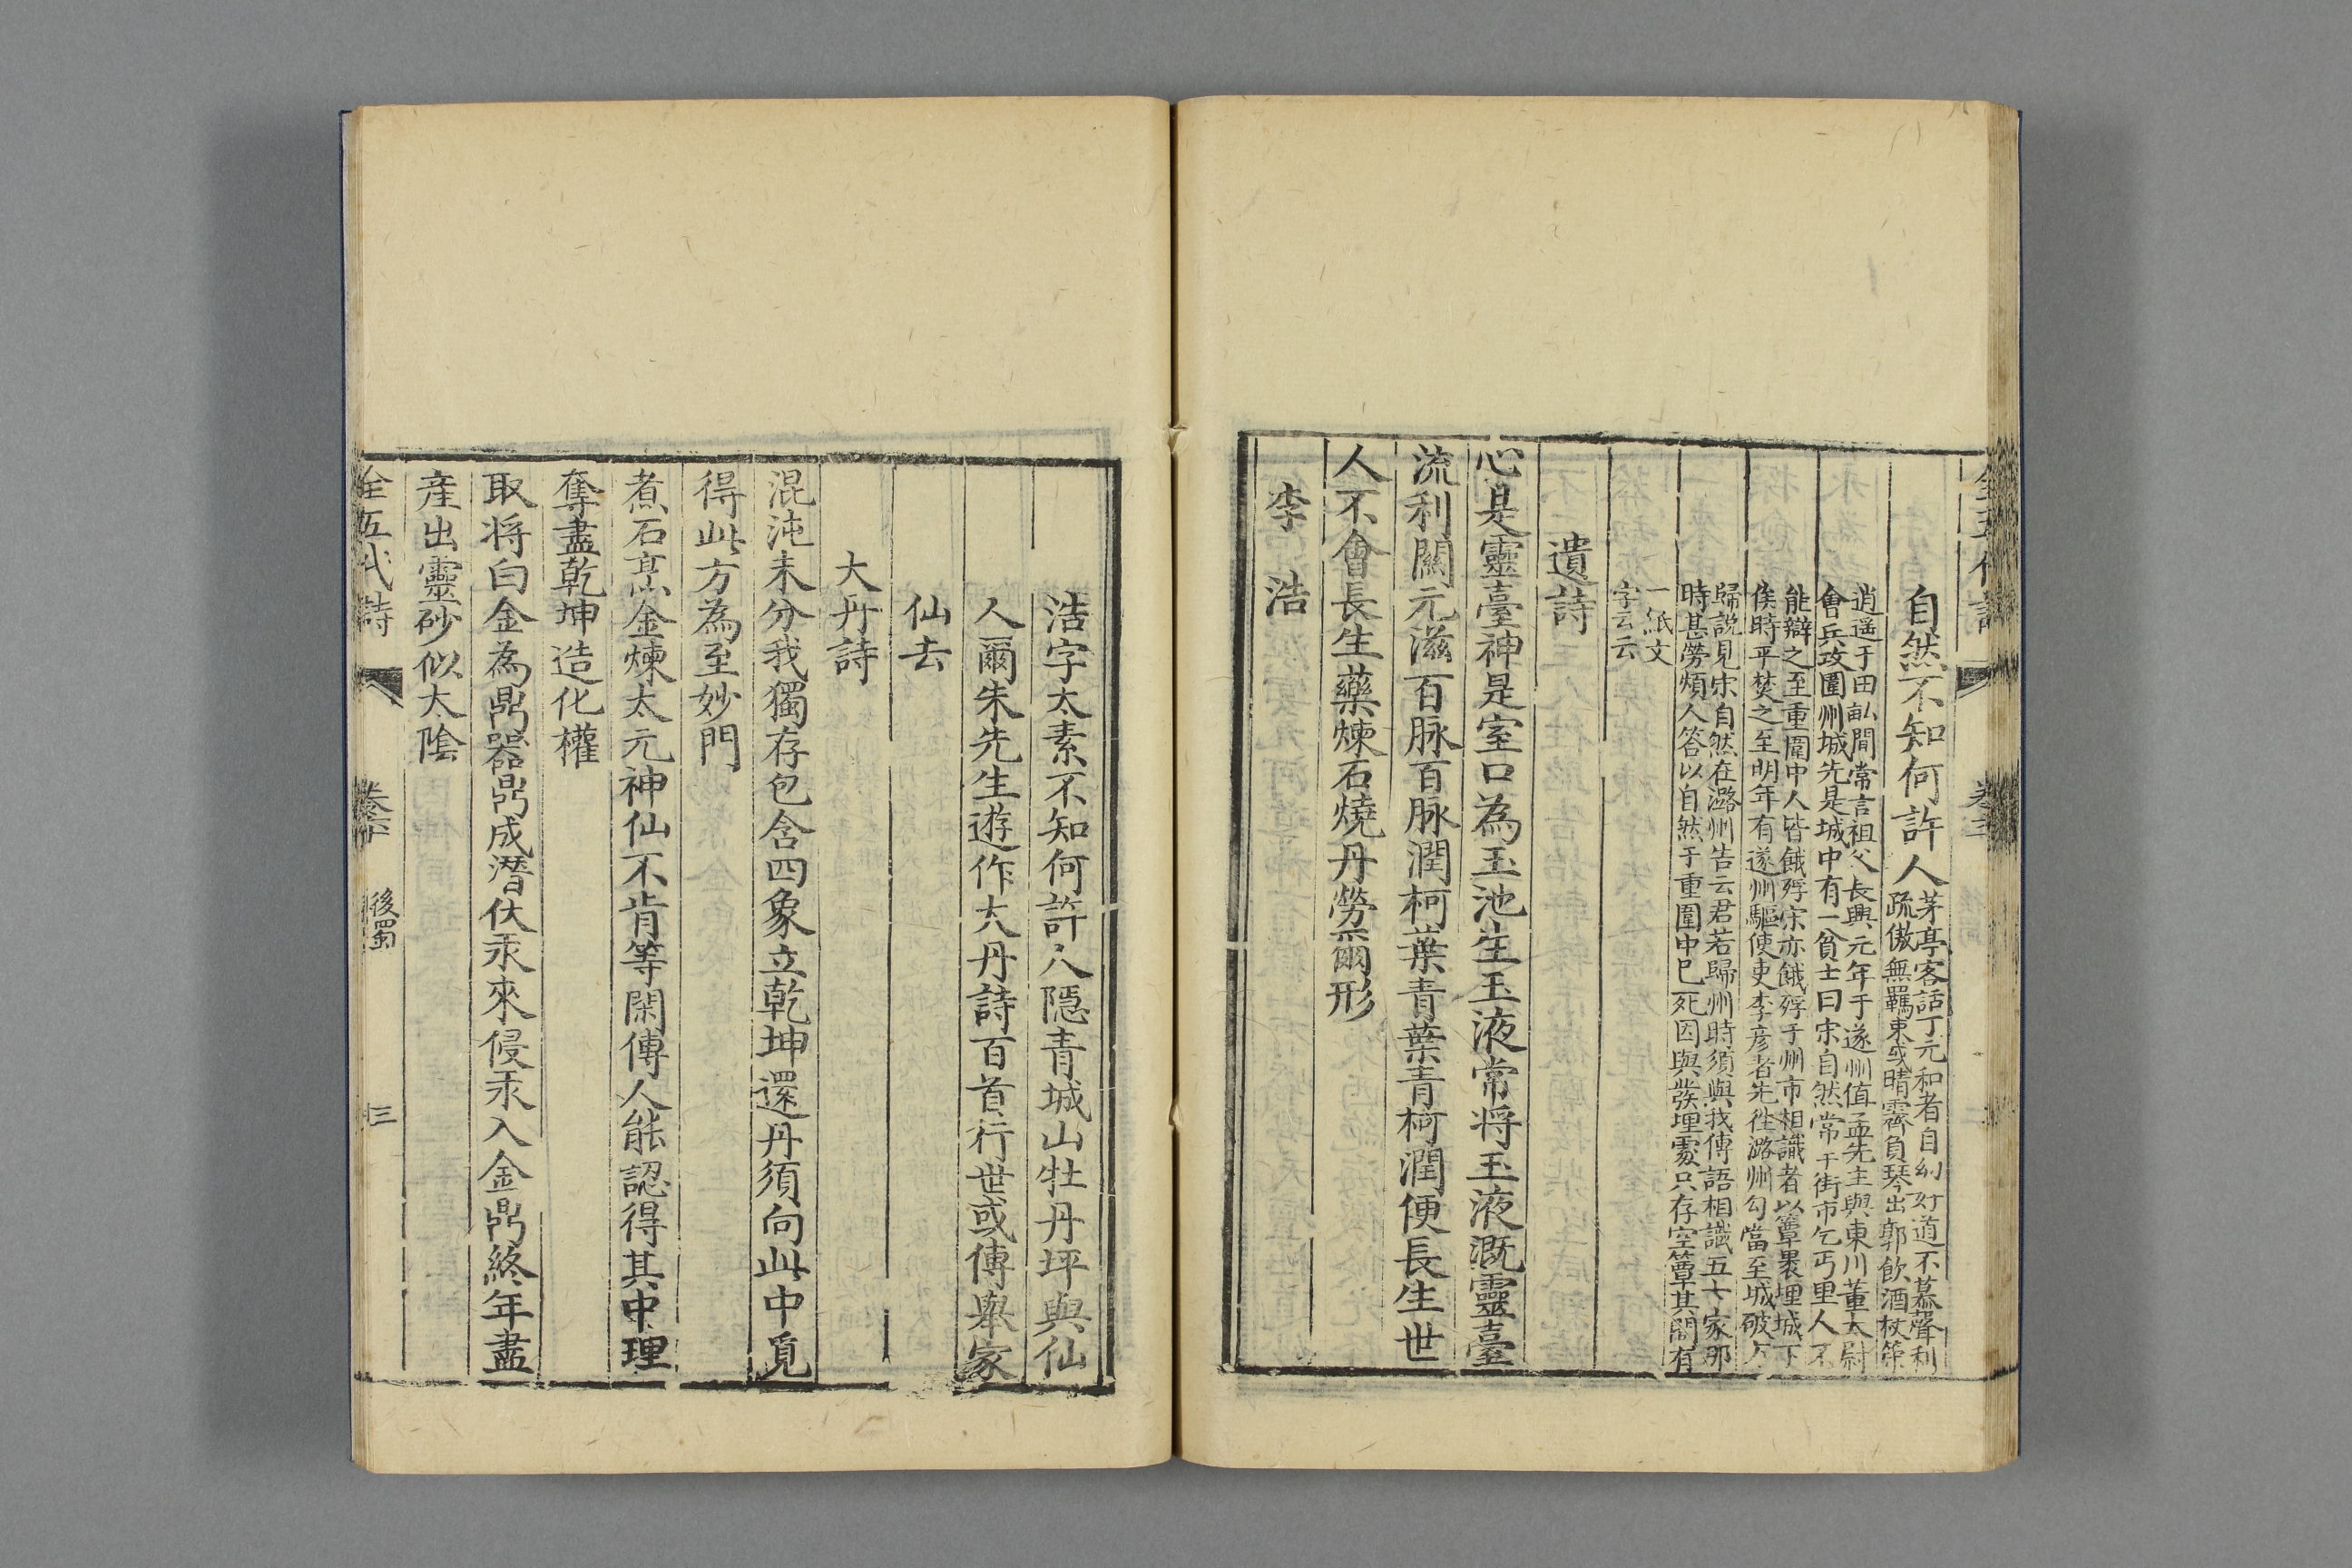 自然不知何許人茅亭客話丁元和者自幼好道不慕聲利
疏傲無羈束或晴霽負琴出郭飲酒杖策
逍遥于田畝間常言祖父長興元年于遂州值孟先主與東川董太尉
會兵攻圍州城先是城中有一貧士曰宋自然常于街市乞丐里人不
能辯之至重圍中人皆餓殍宋亦餓殍于州市相識者以簟褁埋城下
俟時平焚之至明年有遂州驅使吏李彦者先往潞州勾當至城破後
歸說見宋自然在潞州告云君若歸州時須與我傳語相識五七家那
時甚勞煩人答以自然于重圍中已死因與發埋處只存空簟其間有
一紙文
字云云
遺詩
心是靈臺神是室口為玉池生玉液常将玉液溉靈臺
流利關元滋百脉百脉潤柯葉青葉青柯潤便長生世
人不會長生藥煉石燒丹勞爾形
李浩
浩字太素不知何許人隱青城山牡丹坪與仙
人爾朱先生遊作大丹詩百首行世或傳舉家
仙去
大丹詩
混沌未分我獨存包含四象立乾坤還丹須向此中覓
得此方為至妙門
煮石烹金煉太元神仙不肯等閑傳人能認得其中理
奪盡乾坤造化權
取将白金為鼎器鼎成潛伏汞來侵汞入金鼎終年盡
産出靈砂似太陰
全五代詩
後蜀
三